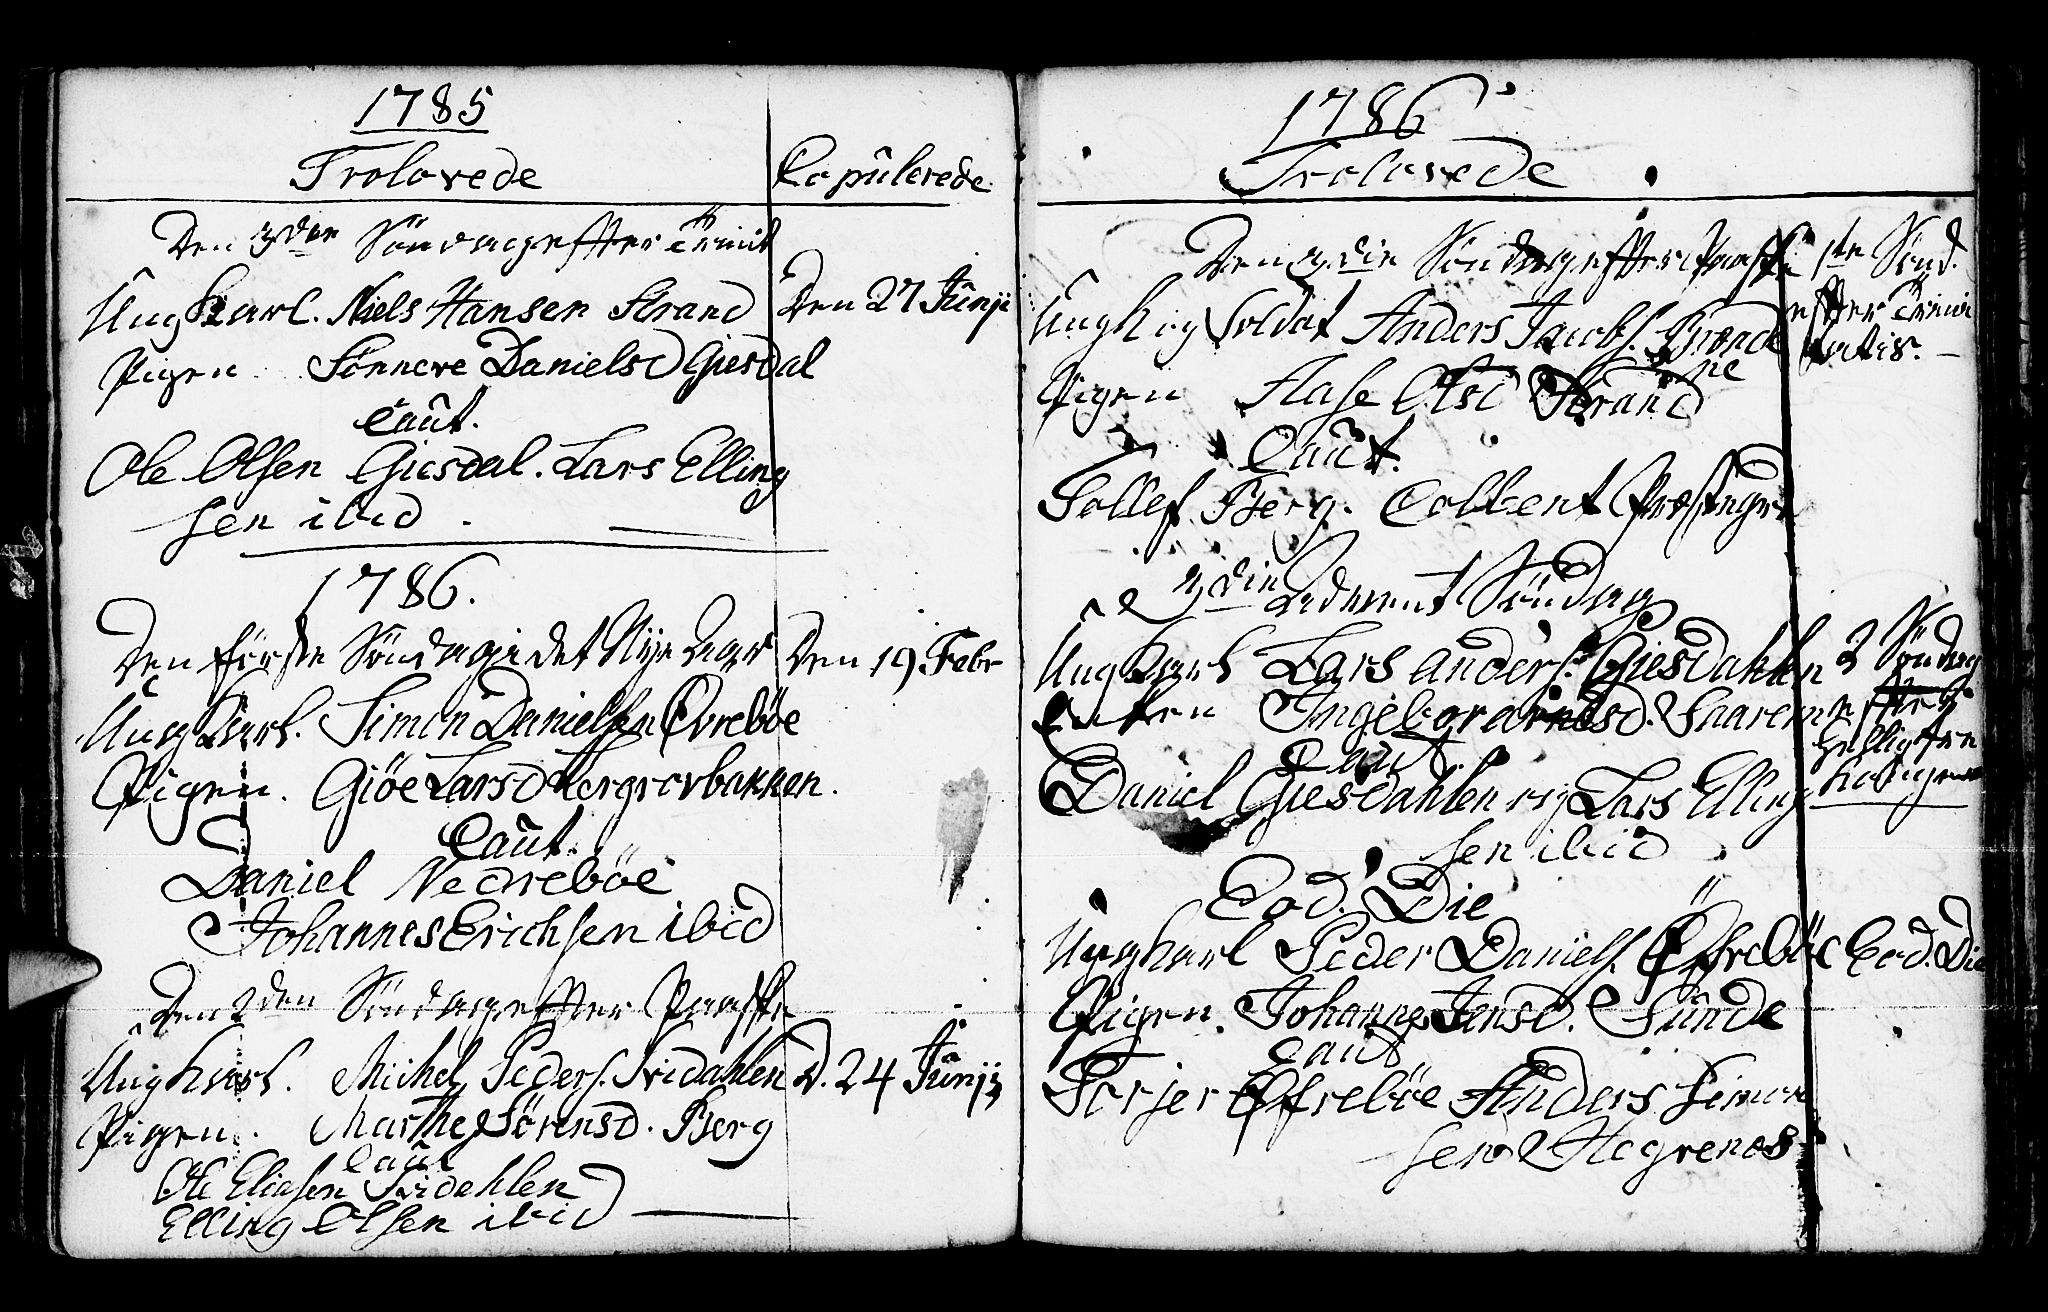 1785
Trolovede
Copulerede
Den 3die Söndag effter Trinit
Ung Karl. Niels Hansen Strand
Den 27 Junji
Pigen Sönneve Danielsd Giesdal
Caut.
Ole Olsen Giesdal. Lars Elling
sen ibid.
1786.
Den förste Söndag i det Nye Aar
Den 19 Febr
Ung Karl. Simon Danielsen Övreböe
Pigen. Giöe Larsd Hergrovbakken.
Caut.
Daniel Nedreböe
Johannes Erichsen ibid
Den 2den Söndag effter Paaske
Ung Karl. Michel Peders. Aridahlen
D. 24 Junji
Pigen. Marthe Sörensd. Berg
Caut
Ole Eliasen Aridahlen
Elling Olsen ibid
1786
Trolovede
Den 3die Söndag effter Paaske
1te Sönd.
effter Trini
tatis.
Ung Soldat Anders Jacobs. Brende
ne
Pigen Aase Olsd Strand
Caut.
Tollef Berg. Colbent
3die Advent Söndag
Ung Karl Lars Anders. Giesdahlen
2 Söndag
effter
Hellig tre
Konger
Enken Ingebor Arnesd. Skarem
Caut
Daniel Giesdahlen og Lars Elling
sen ibid
Eod. Die
Ung Karl Peder Daniels. Öfreböe
Eod. Die
Pigen. Johanne Jensd. Sunde
Caut
Torjer Öfreböe Anders Simon
sen Hegrenes